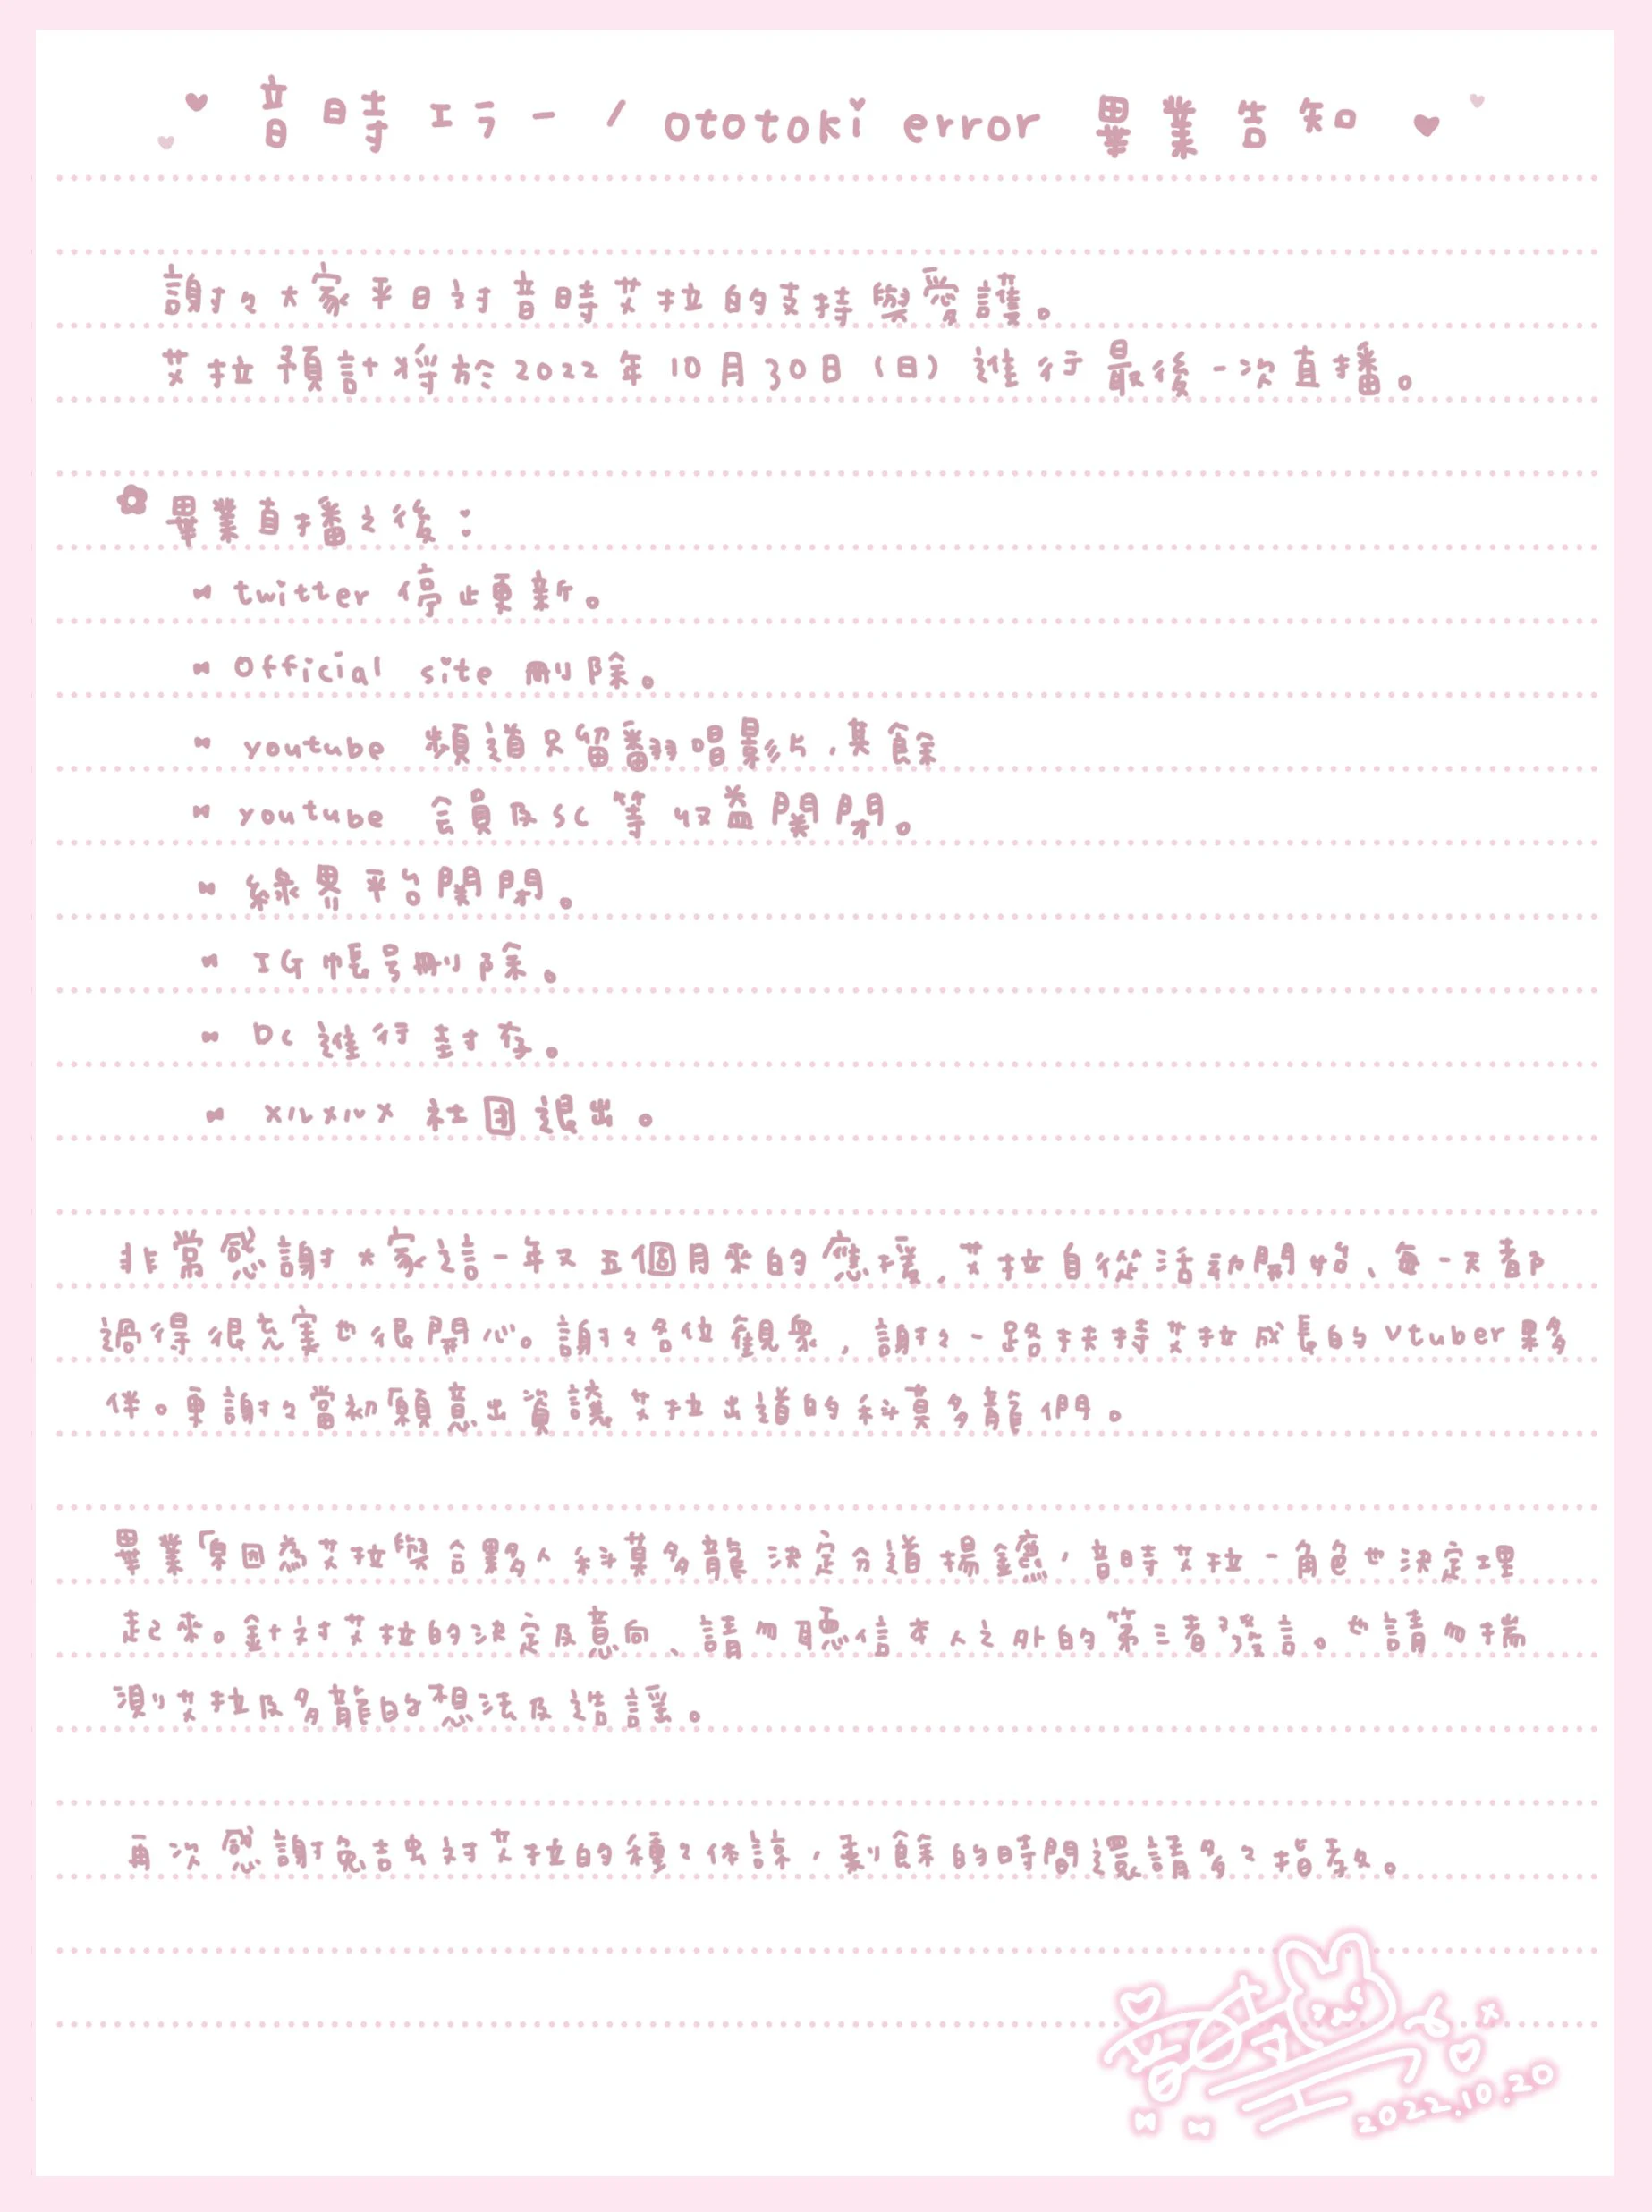 音時エラー / ototoki error 畢業告知
謝々大家平日対音時艾拉的支持與愛護。
艾拉預計将於2022年10月30日(日)進行最後一次直播。
畢業直播之後:
twitter 停止更新。
Official site 刪除。
youtube 頻道只留翻唱影片,其餘
youtube 会員及SC等収益関閉。
綠界平台関閉。
IG帳号刪除。
DC進行封存。
メルメルメ 社团退出。
非常感謝大家這一年又五個月來的應援,艾拉自從活动開始、每一天都
過得很充実也很開心。謝々各位観衆,謝々一路扶持艾拉成長的Vtuber夥
伴。更謝々當初願意出資讓艾拉出道的科莫多龍們。
畢業原因為艾拉與合夥人科莫多龍決定分道揚鑣,音時艾拉一角色也決定埋
起來。針対艾拉的決定及意向、請勿聽信本人之外的第三者發言。也請勿揣
測艾拉及多龍的想法及造謠。
再次感謝兔吉虫対艾拉的種々体諒,剩餘的時間還請多々指教。
音時エラー
2022.10.20